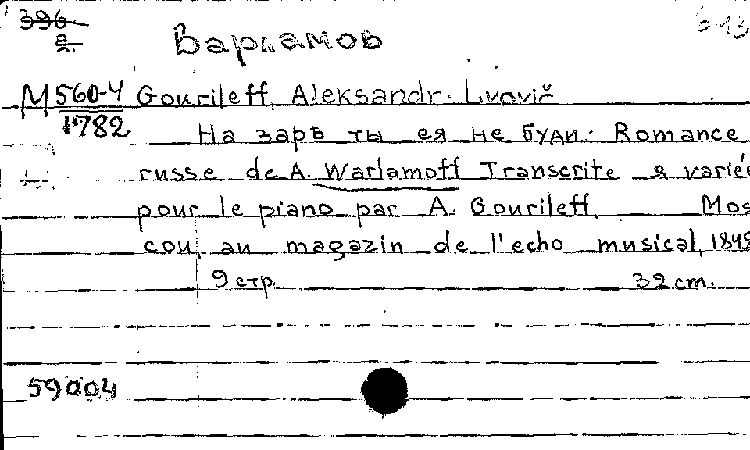 396
a
Варламов
M 560-4 Gourileff, Aleksandr Lvovič
1782
На зарѣ ты ея не буди. Romance
russe de A. Warlamoff Transcrite & varié
pour le piano par A. Gourileff. Mos
cou, au magazin de l'echo musical,
9 стр. 32 cm.
59004